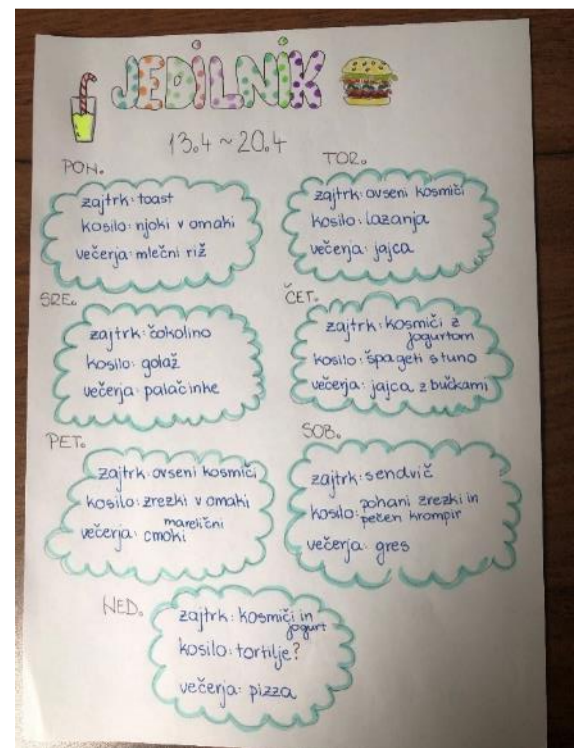 JEDILNIK
13.4 ~ 20.4
PON.
zajtrk: toast
kosilo: njoki v omaki
večerja: mlečni riž
TOR.
zajtrk: ovseni kosmiči
kosilo: lazanja
večerja: jajca
SRE.
zajtrk: čokolino
kosilo: golaž
večerja: palačinke
ČET.
zajtrk: kosmiči z
jogurtom
kosilo: špageti s tuno
večerja: jajca z bučkami
PET.
zajtrk: ovseni kosmiči
kosilo: zrezki v omaki
večerja: marelični
cmoki
SOB.
zajtrk: sendvič
kosilo: pohani zrezki in
pečen krompir
večerja: gres
NED.
zajtrk: kosmiči in
jogurt
kosilo: tortilje?
večerja: pizza